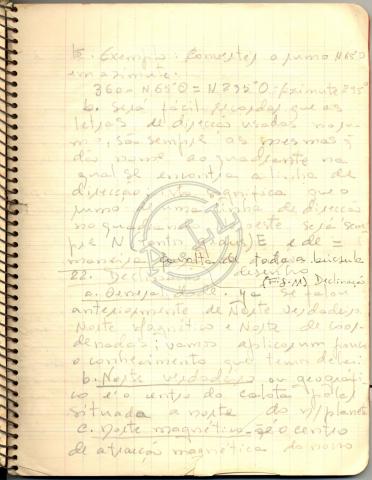 5. Exemplo: Converter o rumo N.65°O
em azimute.
360 - N.65°O = N.295°O. Azimute 295°
b. Será fácil recordar que as
letras de direcção usadas no ru-
mo, são sempre as mesmas,
do nome ao quadrante na
qual se encontra a linha de
direcção; significa que o
rumo de uma linha de direcção
no quadrante oeste será sem-
pre N E e de
maneira volta de toda a bússula
22. desenho
a. Generalidade. Ya se falou (Fig. 11) Declinação
anteriormente de Norte verdadeiro
Norte Magnético e Norte de coor-
denadas; vamos
o conhecimento que temos
b. Norte verdadeiro ou geográfi-
co é o centro da calota polar
situada a norte do n/ planeta
c. Norte magnético - é o centro
de atracção magnética do nosso
ALL